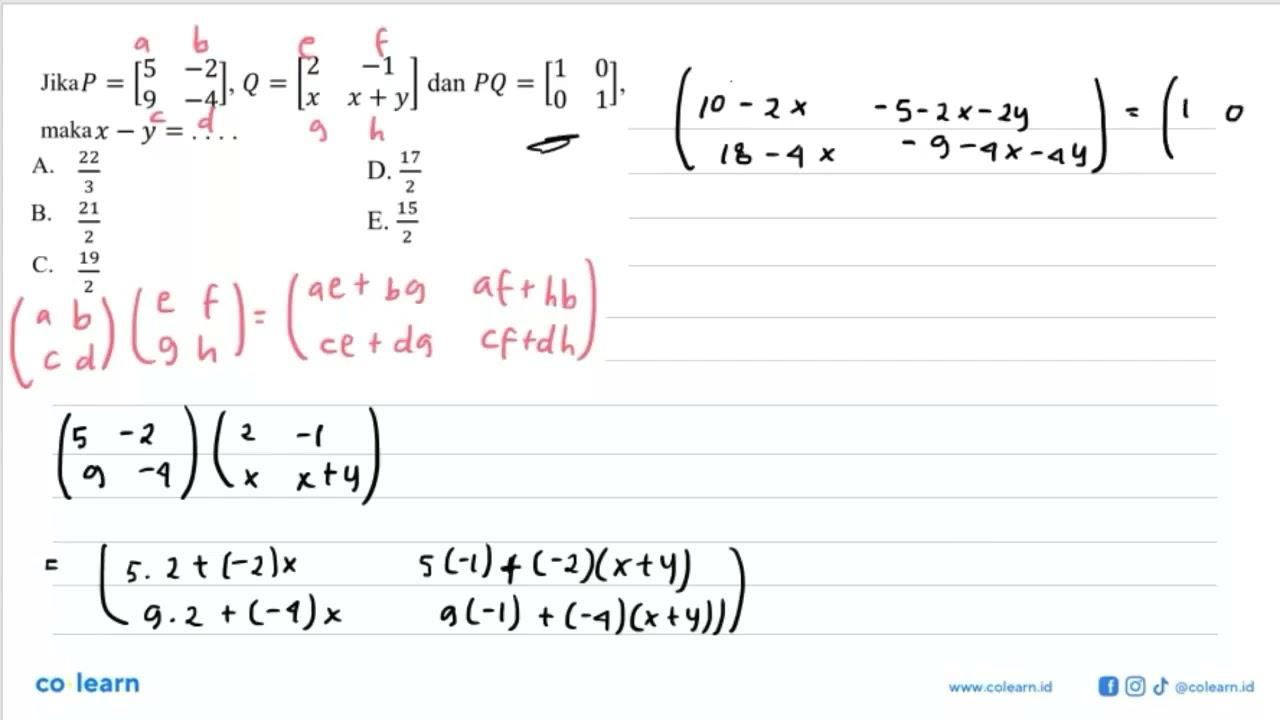 a b e f
Jika P = [5 -2; 9 -4], Q = [2 -1; x x + y] dan PQ = [1 0; 0 1],
c d g h
maka x − y = ....
A. 22/3
D. 17/2
B. 21/2
E. 15/2
C. 19/2
(a b; c d) (e f; g h) = (ae + bg af + hb; ce + dg cf + dh)
(5 -2; 9 -4) (2 -1; x x + y)
= (5.2 + (-2)x 5(-1) + (-2)(x+y); 9.2 + (-4)x 9(-1) + (-4)(x+y)))
(10 - 2x -5 - 2x - 2y; 18 - 4x -9 - 4x - 4y) = (1 0
co learn
www.colearn.id
@colearn.id